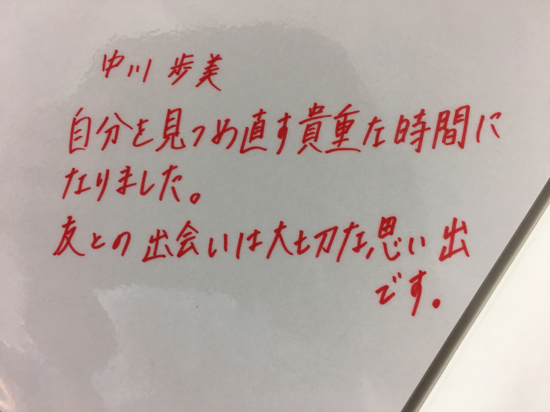 中川 歩美
自分を見つめ直す貴重な時間に
なりました。
友との出会いは大切な思い出
です。